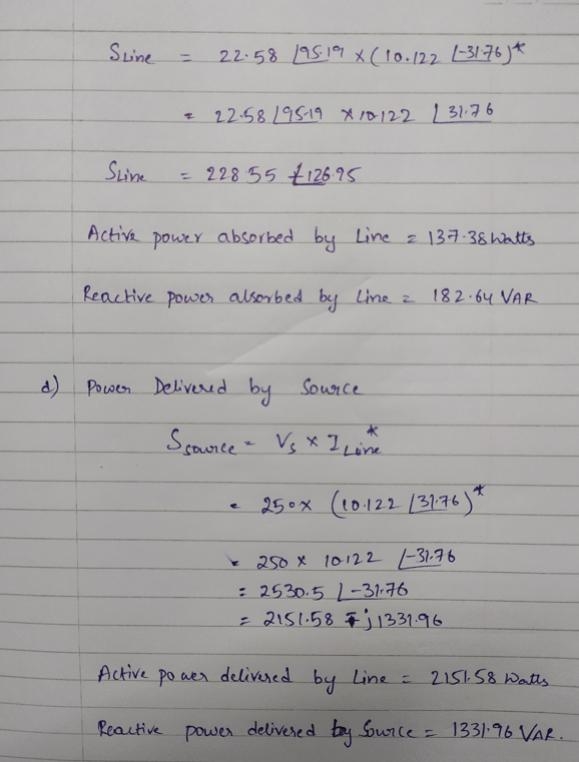 SLine = 22.58 ∠95.19 × (10.122 ∠-31.76)*
= 22.58 ∠95.19 × 10.122 ∠31.76
SLine = 228.55 ∠126.95
Active power absorbed by Line = 137.38 Watts
Reactive power absorbed by Line = 182.64 VAR
d) Power Delivered by Source
Ssource = Vs × I Line*
= 250 × (10.122 ∠31.76)*
= 250 × 10.122 ∠-31.76
= 2530.5 ∠-31.76
= 2151.58 - j 1331.96
Active power delivered by Line = 2151.58 Watts
Reactive power delivered by Source = 1331.96 VAR.